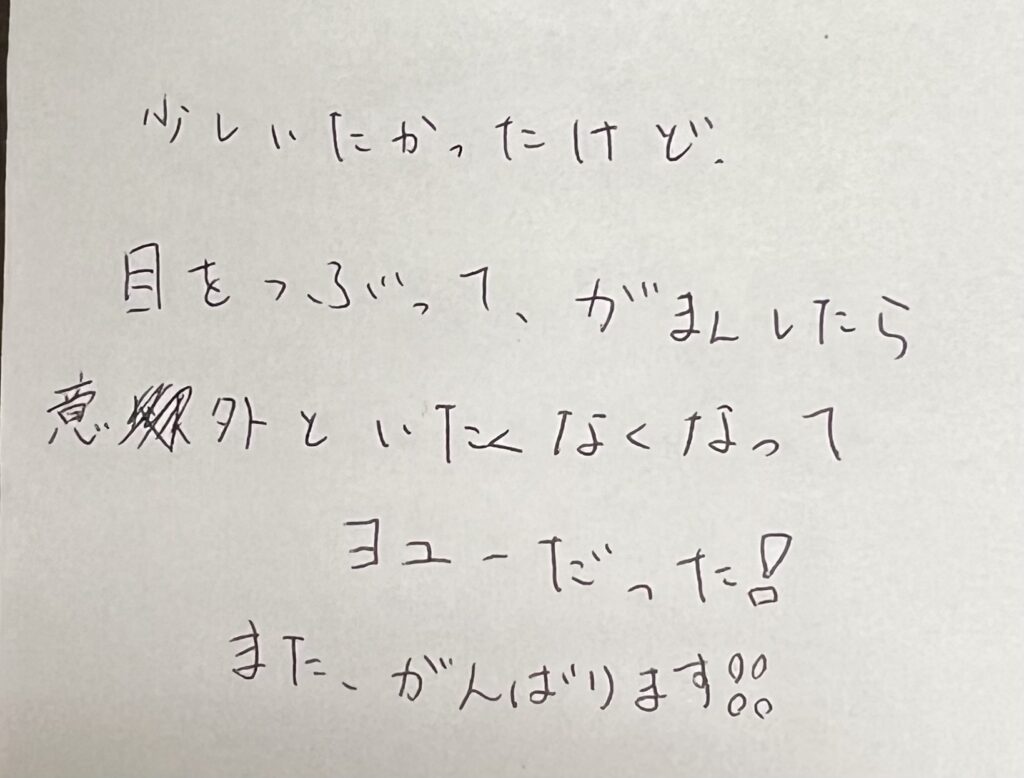 少しいたかったけど、
目をつぶって、がまんしたら
意外といたくなくなって
ヨユーだった!
また、がんばります!!